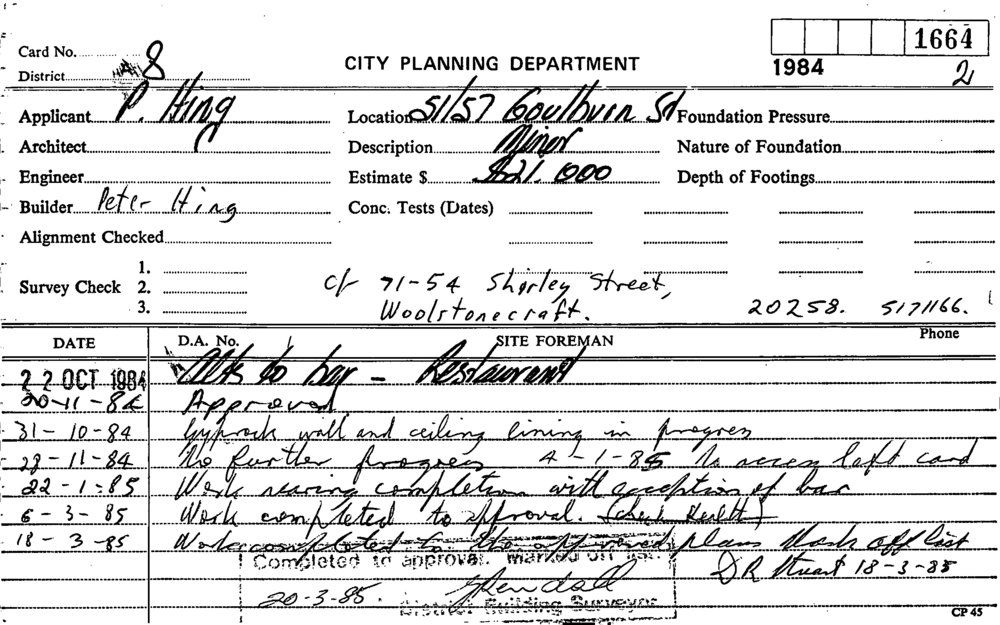 Card No. 8 1664
District CITY PLANNING DEPARTMENT 1984 2
Applicant P. Hing Location 51/57 Goulburn St Foundation Pressure
Architect Description Minor Nature of Foundation
Engineer Estimate $ $21.000 Depth of Footings
Builder Peter Hing Conc. Tests (Dates)
Alignment Checked
1.
Survey Check 2. c/- 71-54 Shirley Street,
3. Woolstonecraft. 20258. 5171166.
DATE D.A. No. SITE FOREMAN Phone
22 OCT 1984 Alts to bar - Restaurant
20-11-84 Approved
31-10-84 Gyprock wall and ceiling lining in progress
28-11-84 No further progress 4-1-85 No access left card
22-1-85 Work nearing completion with exception of bar
6-3-85 Work completed to approval. (Check Health)
18-3-85 Work completed to the approved plans Mark off list
Completed to approval. Marked off list. D R Stuart 18-3-85
20-3-85.
District Building Surveyor
CP 45